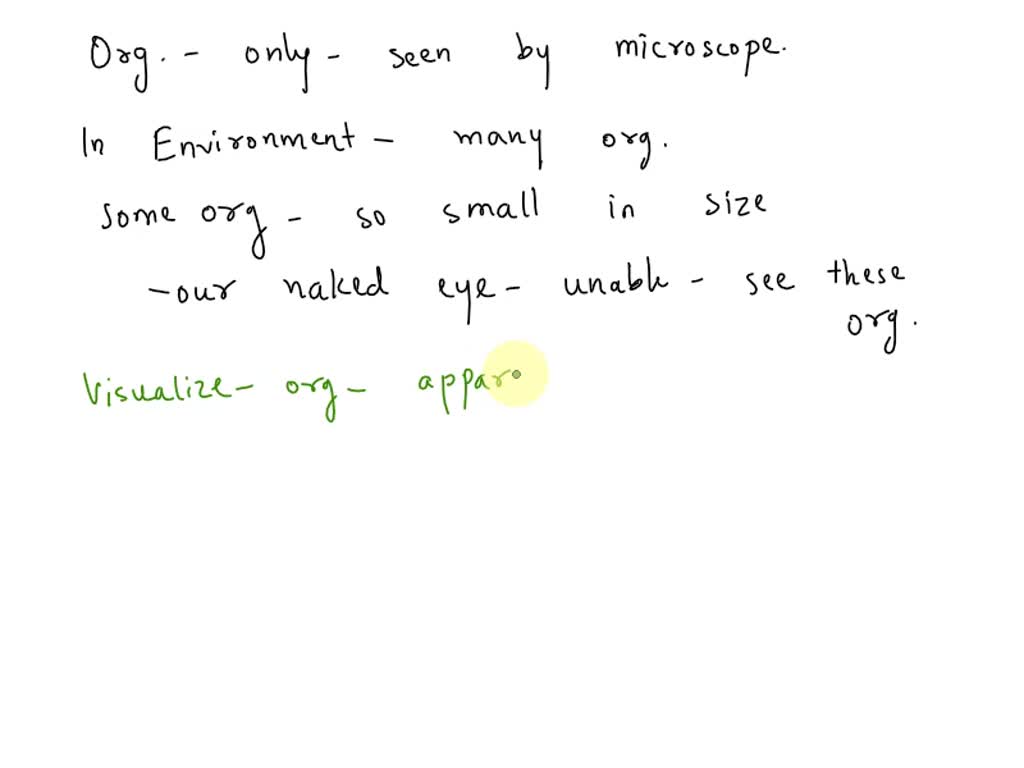 Org. - only - seen by microscope.
In Environment - many org.
Some org - so small in size
- our naked eye - unable - see these
org.
Visualize - org - appar